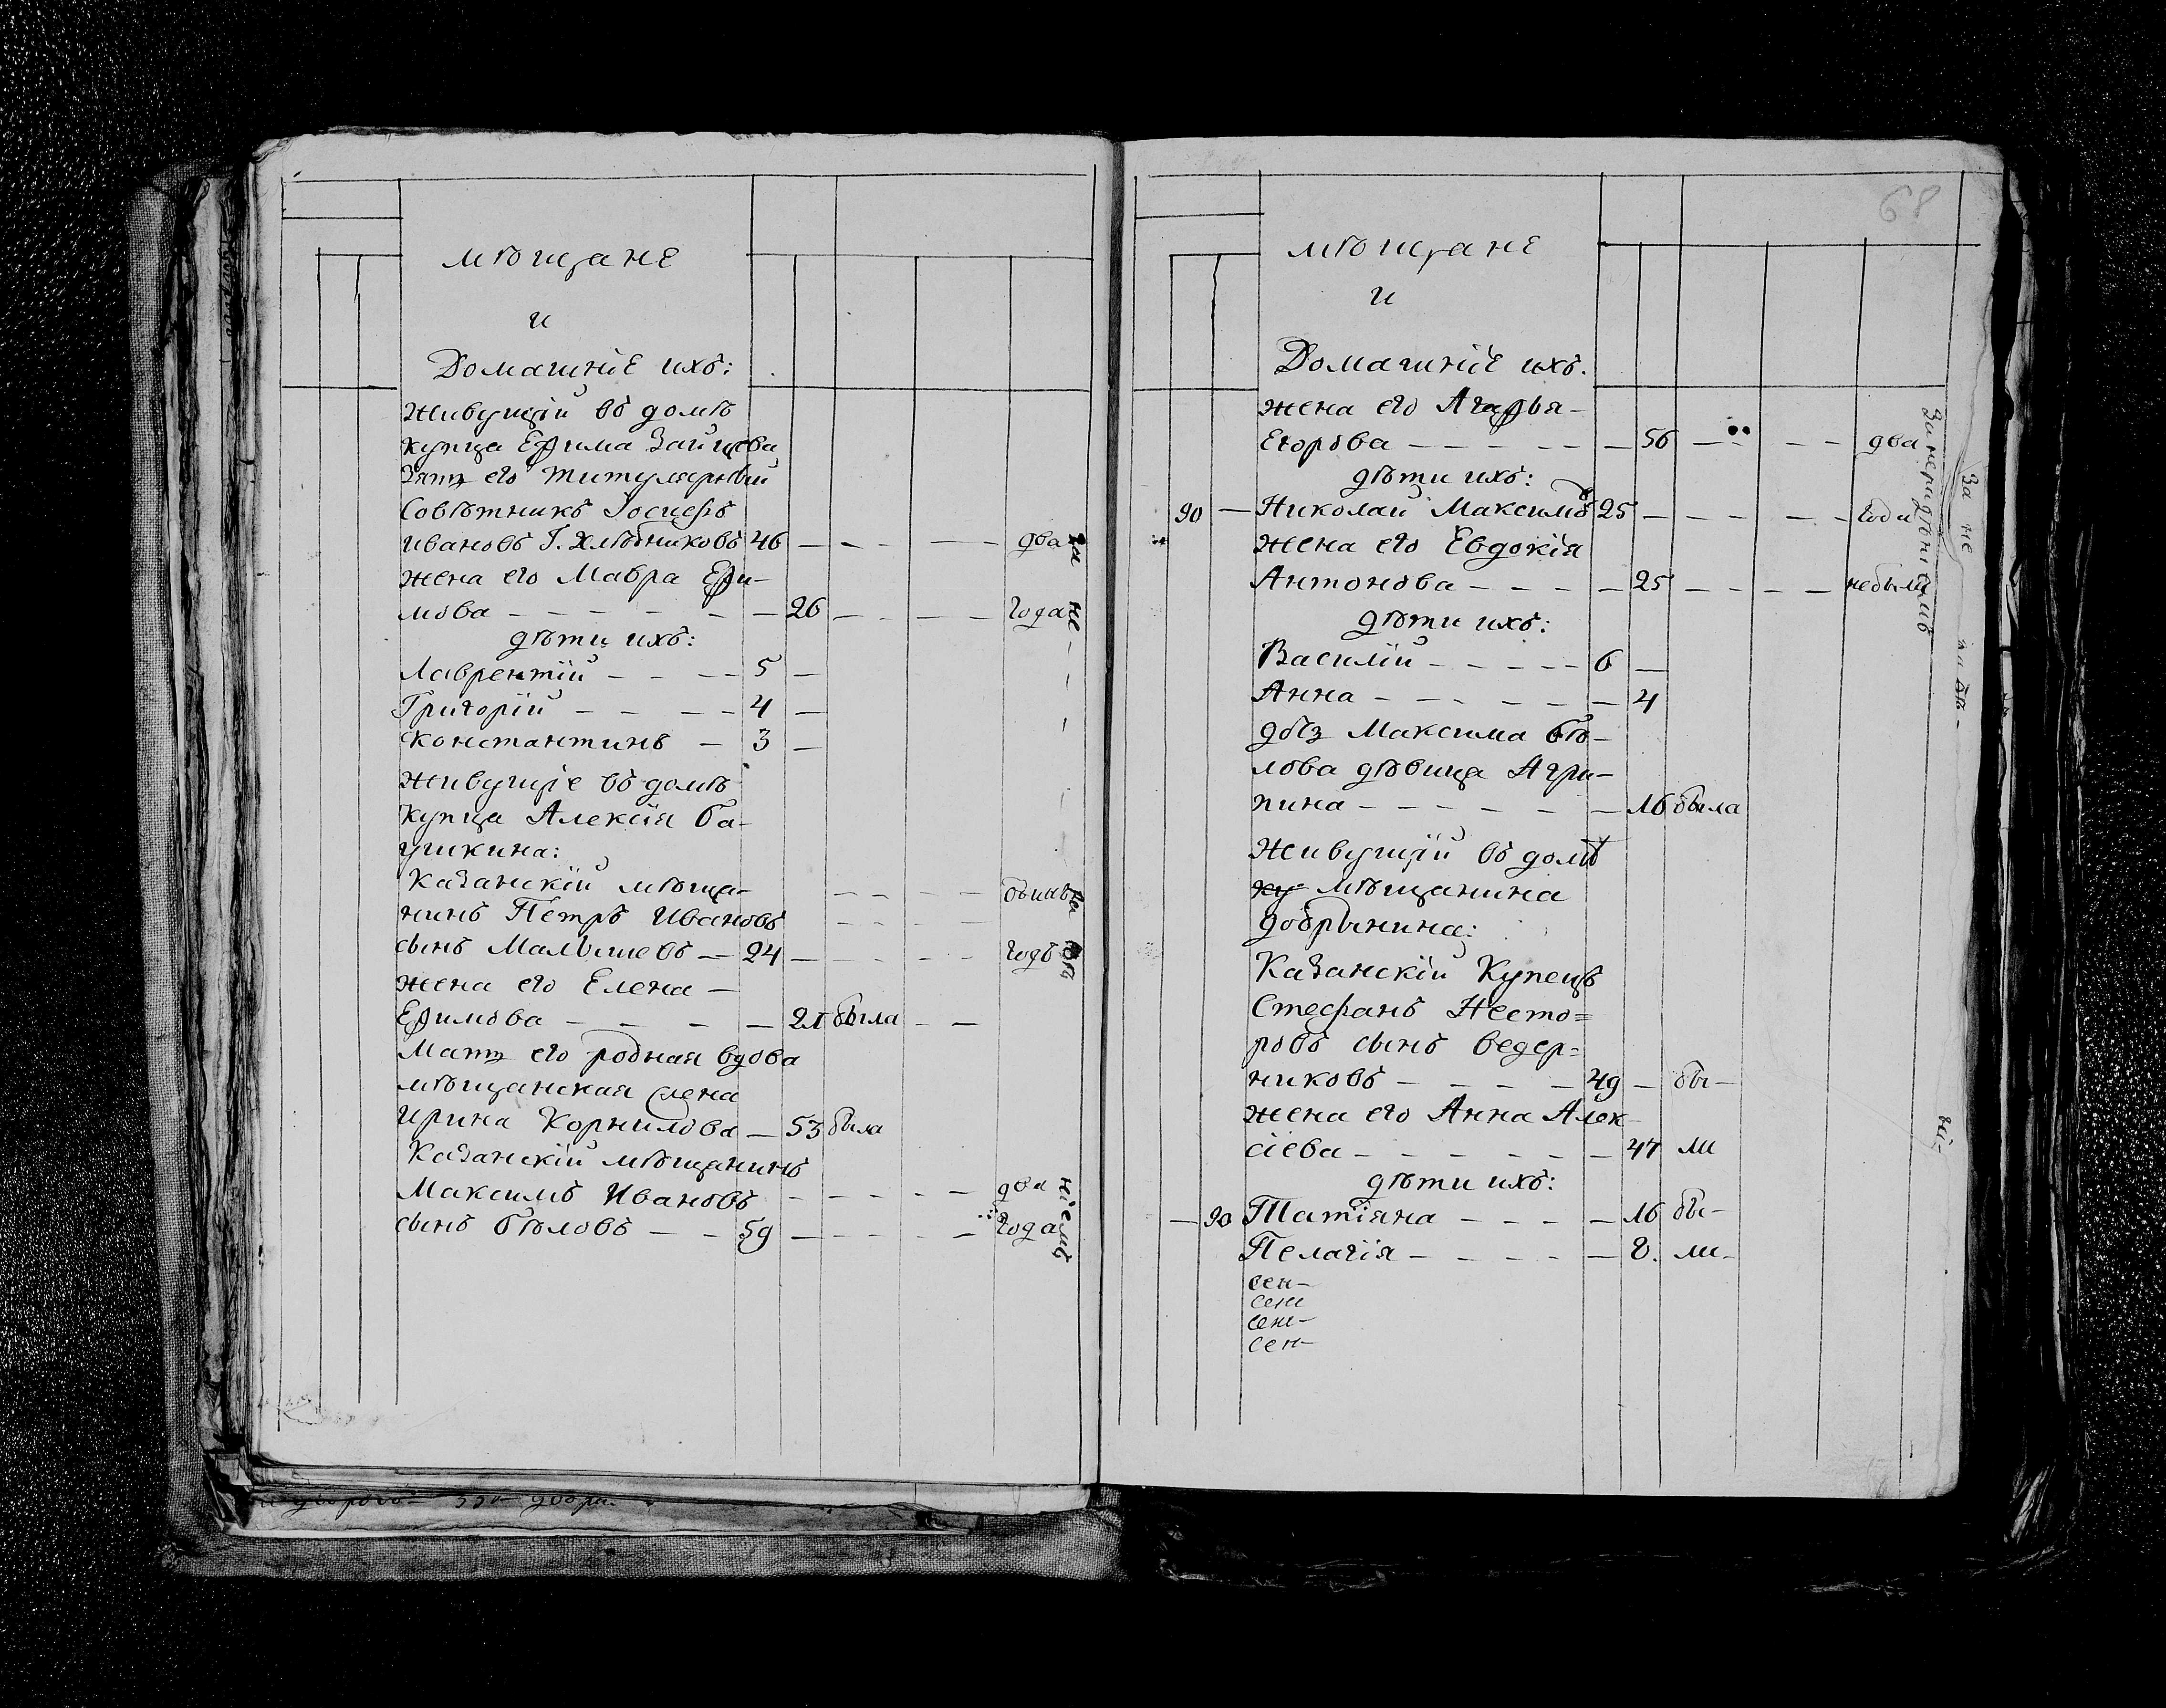 мѣщане
и
Домашніе ихъ:
живущій въ домѣ
купца Ефима Зайцева
Зять его титулярный
Совѣтникъ Іосифъ
Ивановъ Г. Хлѣбниковъ 46 — — — — два
жена его Мавра Ефи-
мова — — — — — 26 — — — — года
дѣти ихъ:
Лаврентій — — — 5 —
Григорій — — — — 4 —
Константинъ — 3 —
живущіе въ домѣ
купца Алексія ба-
ушкина:
Казанскій мѣща-
нинъ Петръ Ивановъ
сынъ Малышевъ — 24 — — — — — годъ
жена его Елена —
Ефимова — — — — 21 была — —
Мать его родная вдова
мѣщанская жена
Ирина Корнилова — 53 была
Казанскій мѣщанинъ
Максимъ Ивановъ — — — — — два
сынъ бѣловъ — — 59 — — — — — года
68
мѣщане
и
Домашніе ихъ.
жена его Агафья —
Егорова — — — — — — 56 — — — — два
дѣти ихъ:
90 — Николай Максимовъ 25 — — — — — года
жена его Евдокія
Антонова — — — — 25 — — — — небыли
дѣти ихъ:
Василій — — — — — 6 —
Анна — — — — — — 4
дочь Максима бѣ-
лова дѣвица Агри-
пина — — — — — — 16 была
Живущій въ домѣ
ку мѣщанина
добрынина:
Казанскій Купецъ
Стефанъ Несто=
ровъ сынъ ведер=
никовъ — — — — 49 — бы —
жена его Анна Алек-
сіева — — — — — — 47 ли
дѣти ихъ:
— 90 Татіяна — — — — 16 бы —
Пелагія — — — — — 8. ли —
сен —
сен
сен —
сен —
За нерадѣніемъ
За не